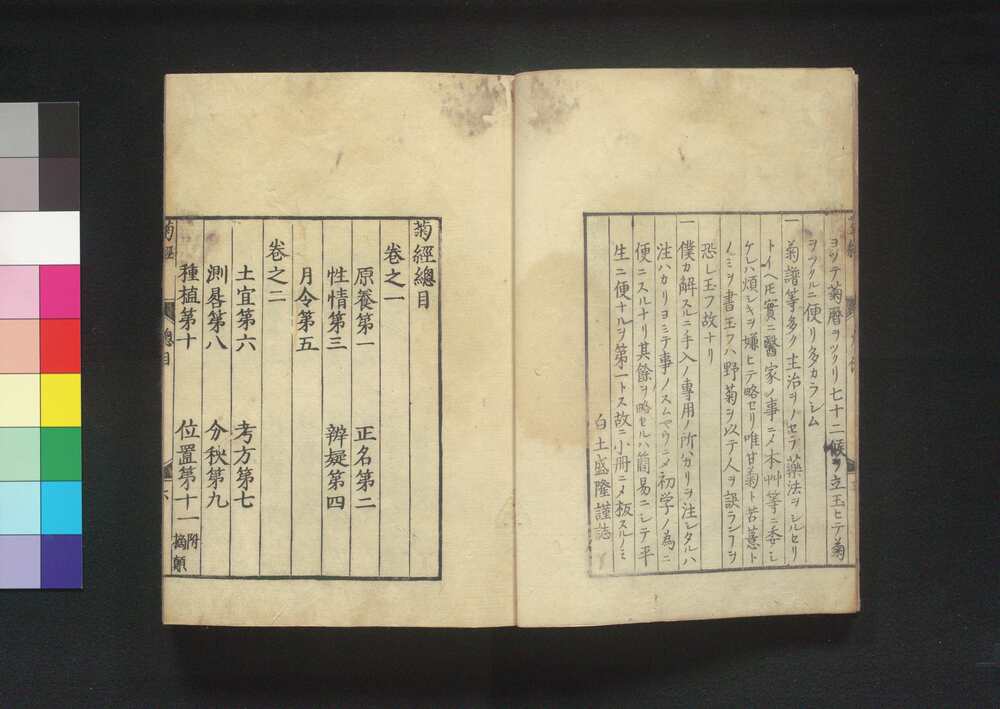 ヲシテ菊暦ヲツクリ七十二候ヲ立玉ヒテ菊
ヲツクルニ便リ多カラシム
一 菊譜等多ク主治ヲノセテ藥法ヲシルセリ
トイヘ𪜈實ニ醫家ノ事ニメ本艸等ニ委シ
ケレハ煩シキヲ嫌ヒテ略セリ唯甘菊ト苦薏ト
ノミヲ書玉フハ野菊ヲ以テ人ヲ誤ランヿヲ
恐レ玉フ故ナリ
一 僕カ解スルニ手入ノ專用ノ所ハカリヲ注シタルハ
注ハカリヨミテ事ノスムヤウニメ初学ノ為ニ
便ニスルナリ其餘ヲ略セルハ簡易ニシテ平
生ニ便ナルヲ第一トス故ニ小冊ニメ板スルノミ
白土盛隆謹誌
菊經總目
卷之一
原養第一 正名第二
性情第三 辨疑第四
月令第五
卷之二
土宜第六 考方第七
測晷第八 分秧第九
種植第十 位置第十一 附摘顛
菊經 總目